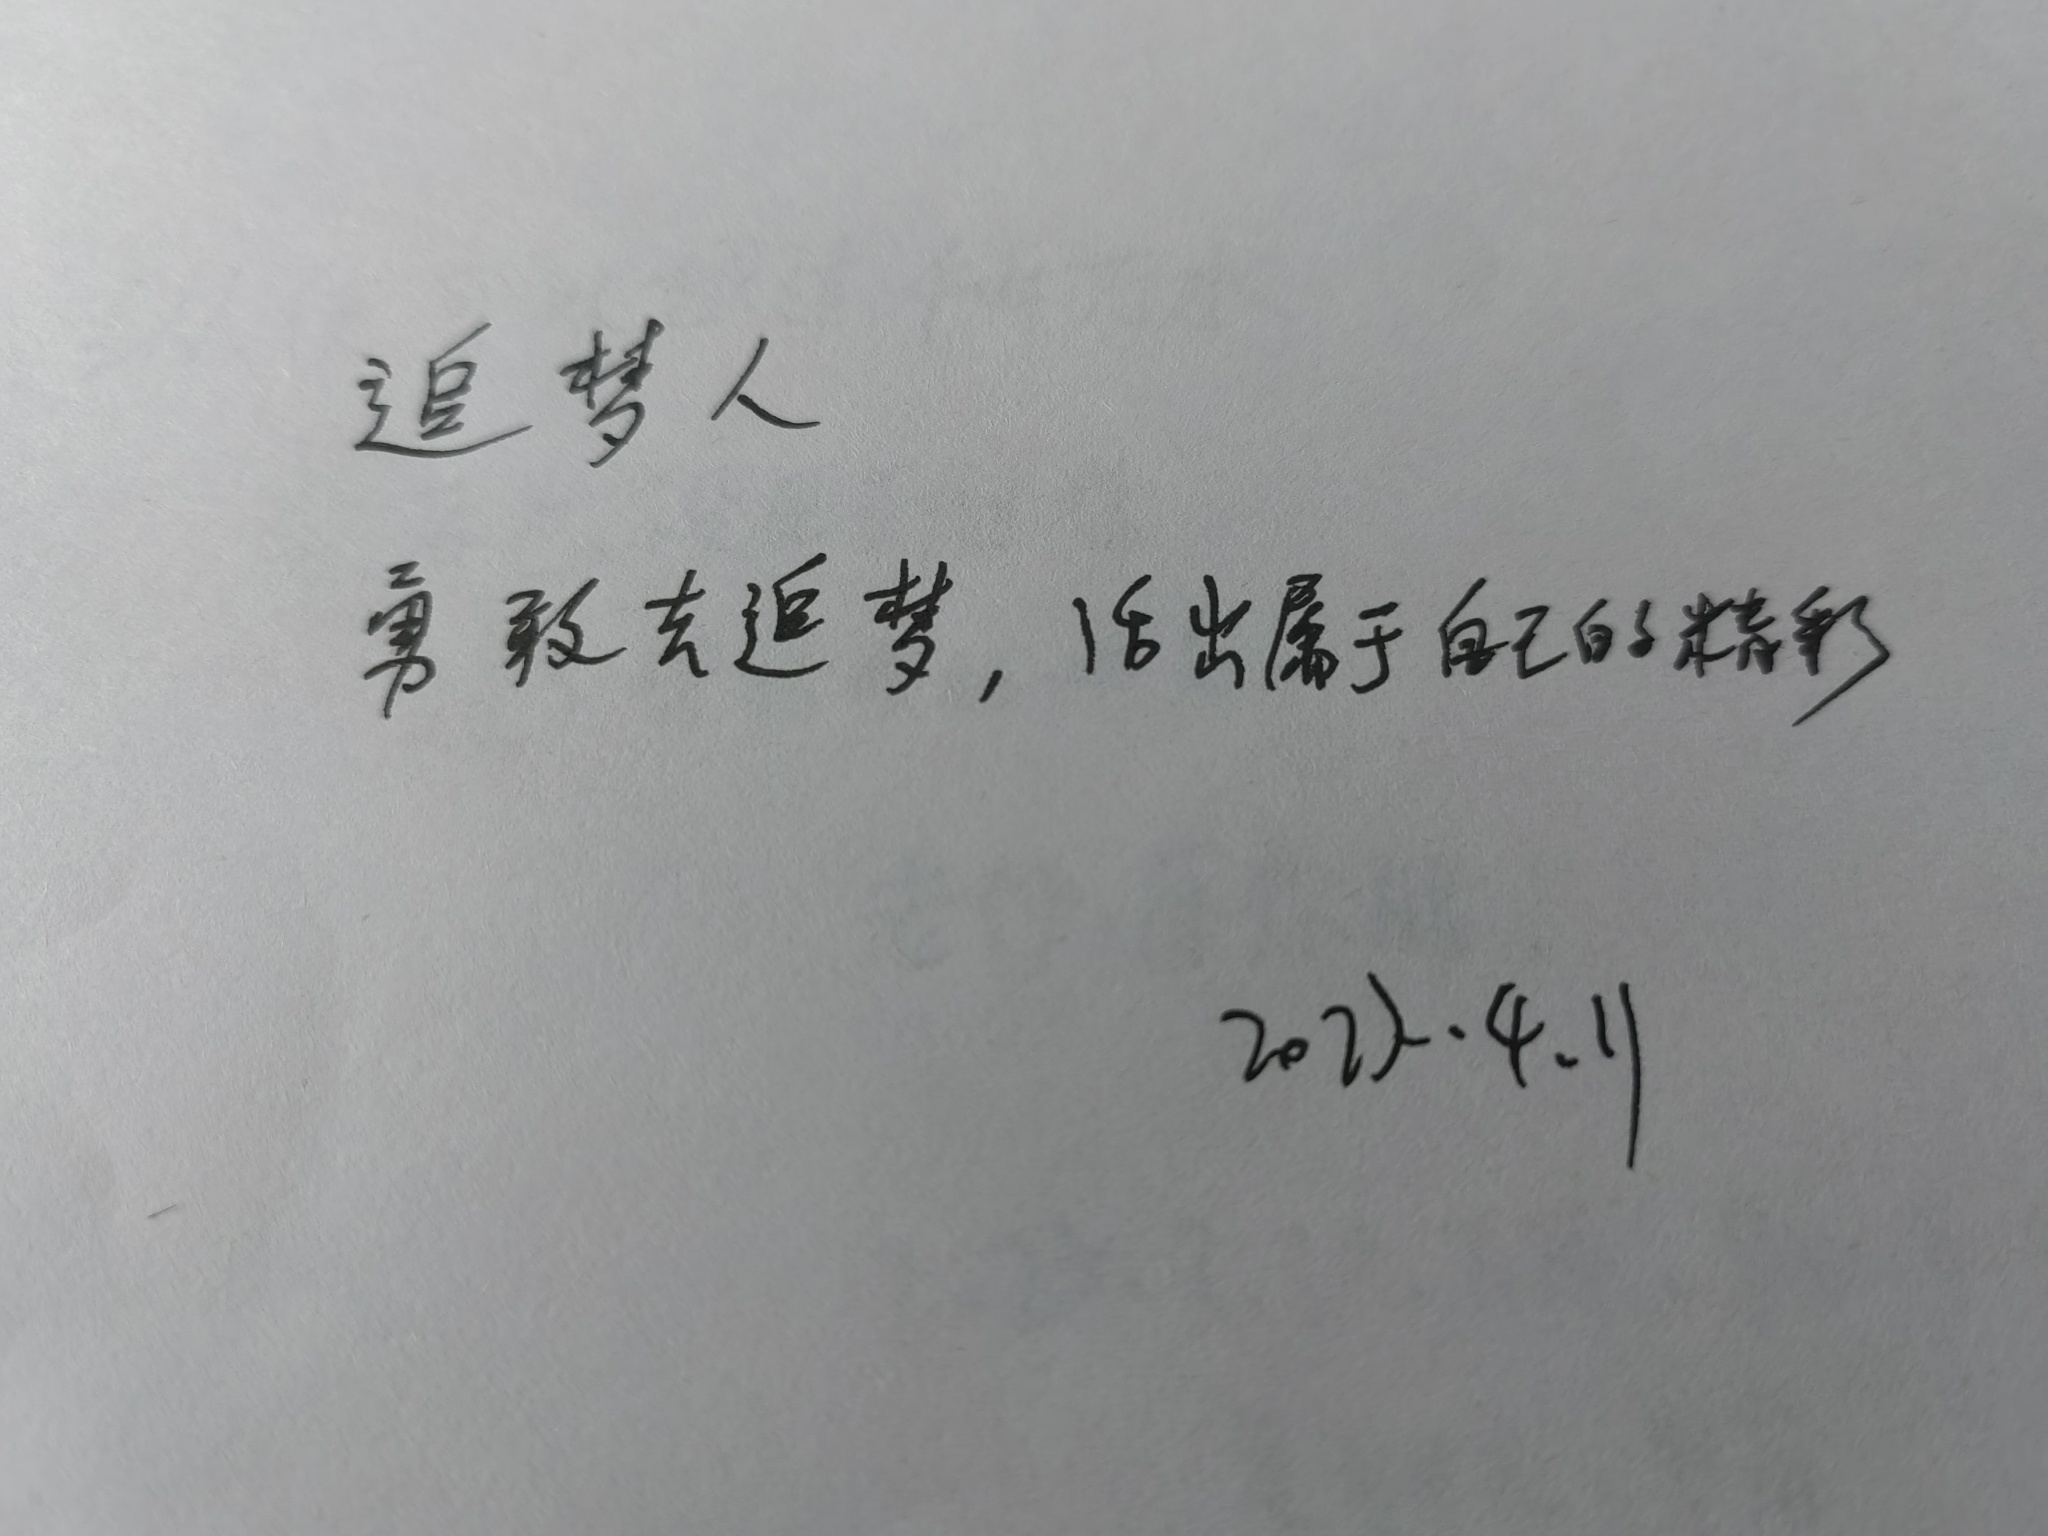 追梦人
勇敢去追梦，活出属于自己的精彩
2022.4.11